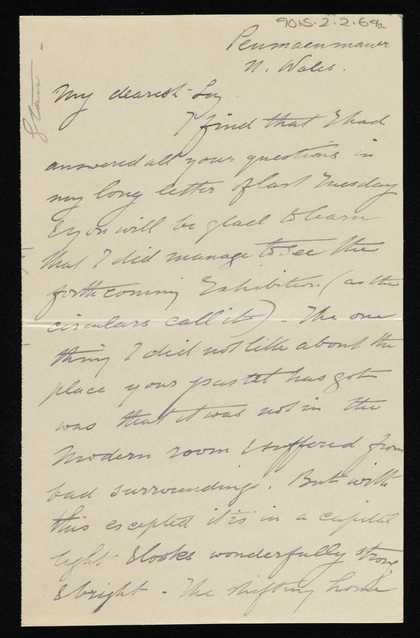 9015.2.2.6
Penmaenmawr
N. Wales.
My dearest
I find that I had
answered all your questions in
my long letter of last Tuesday
& you will be glad to learn
that I did manage to see the
forthcoming Exhibition. (as the
circulars call it). The one
thing I did not like about the
place your pastel has got
was that it was not in the
Modern room & suffered from
bad surroundings. But with
this excepted it is in a capital
light & looks wonderfully strong
& bright - The shifting home